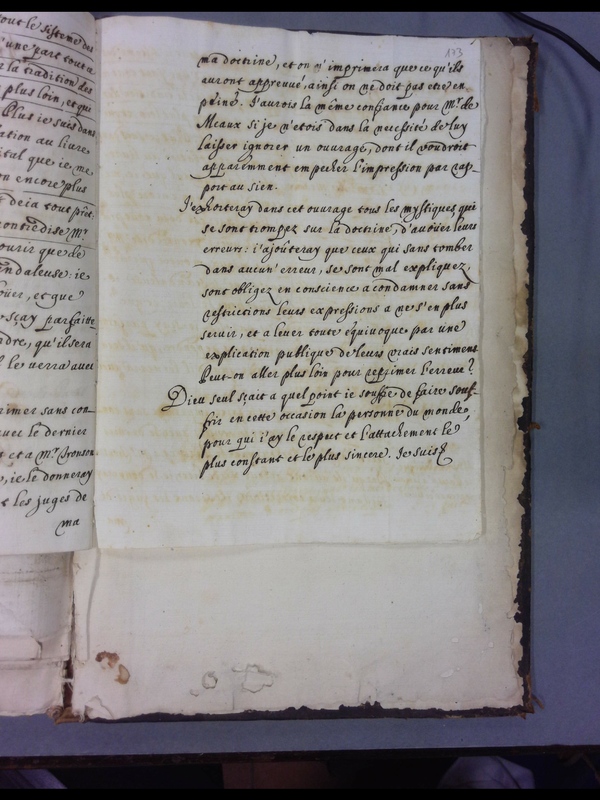 tout le sisteme des
d'une part tout a
r la tradition des
plus loin, et qui
Plus je suis dans
ation au livre
ital que je me
on encore plus
deia tout prêt
contredise Mr
ourir que de
andaleuse: ie
ouer, et que
sçay parfaitte
ndre, qu'il sera
l le verra avec
rimer sans con
uer le dernier
t et a Mr. Tronson
e, ie le donneray
t les juges de
ma
173
ma doctrine, et on n'imprimera que ce qu'ils
auront appreuvé, ainsi on ne doit pas etre en
peine. J'aurois la même confiance pour Mr. de
Meaux si je n'etois dans la necessité de luy
laisser ignorer un ouvrage, dont il voudroit
apparemment empecher l'impression par rap-
port au sien.
J'exhorteray dans cet ouvrage tous les mystiques qui
se sont trompez sur la doctrine, d'avouer leurs
erreurs: i'ajoûteray que ceux qui sans tomber
dans aucun' erreur, se sont mal expliquez,
sont obligez en conscience a condamner sans
restrictions leurs expressions a ne s'en plus
servir, et a lever toute équivoque par une
explication publique de leurs vrais sentimens
Peut-on aller plus loin pour reprimer l'erreur?
Dieu seul sçait a quel point je souffre de faire souf-
frir en cette occasion la personne du monde,
pour qui i'ay le respect et l'attachement le
plus constant et le plus sincere. Je suis &